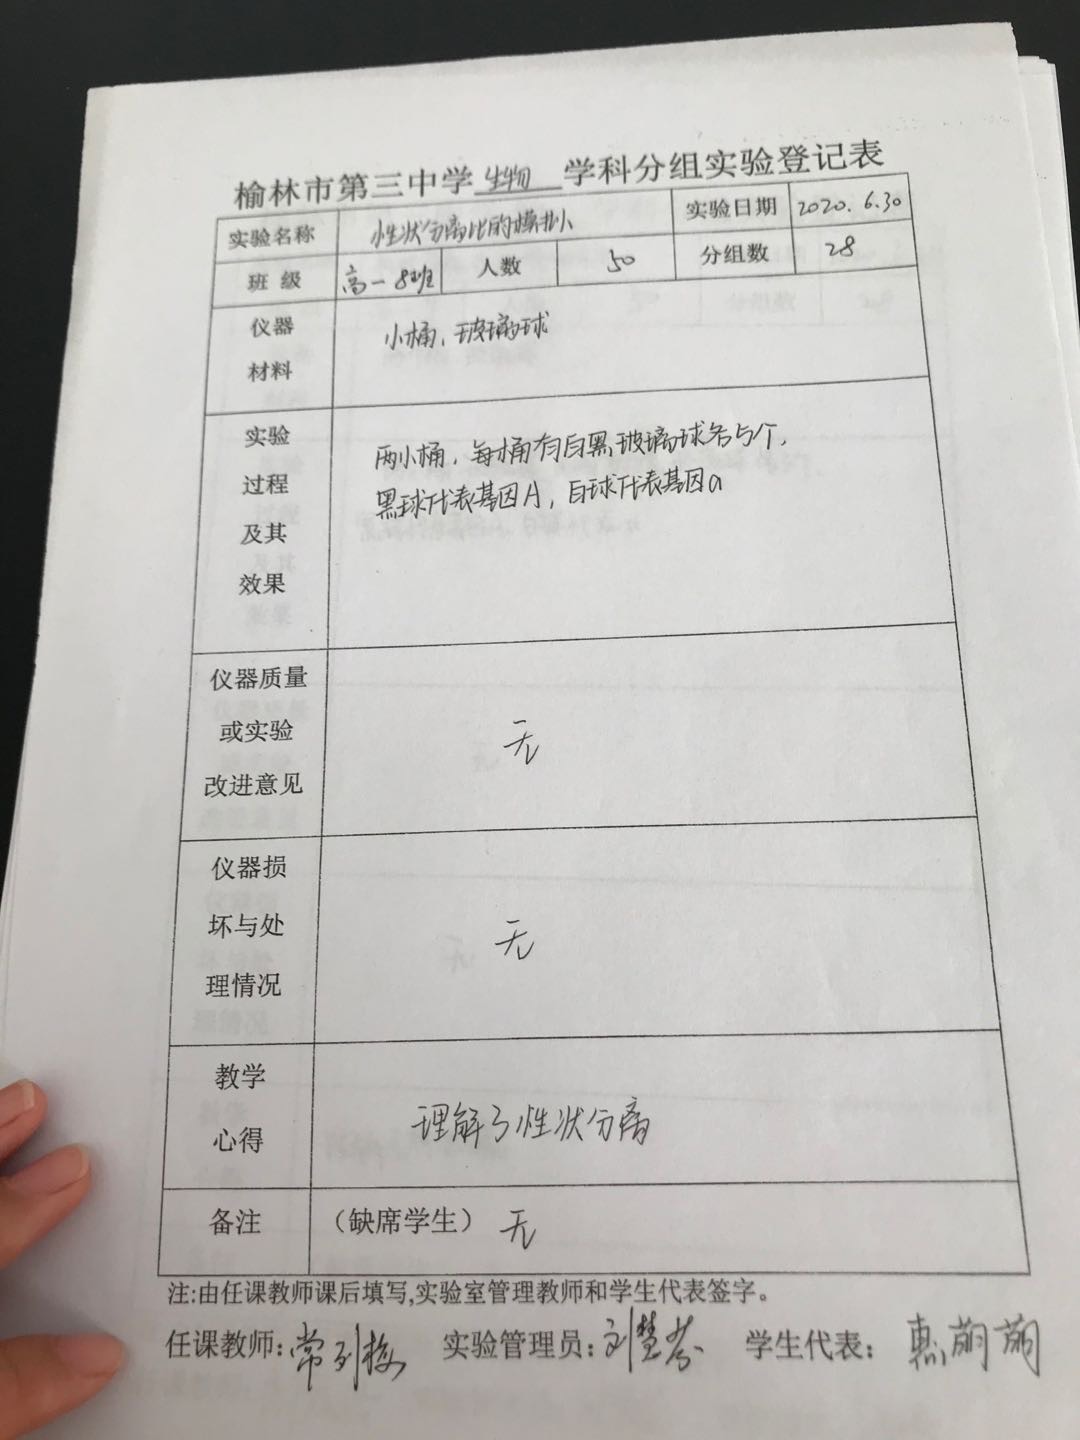 榆林市第三中学生物学科分组实验登记表
实验名称 性状分离比的模拟 实验日期 2020.6.30
班级 高一8班 人数 50 分组数 28
仪器 小桶，玻璃球
材料
实验 两小桶，每桶有白黑玻璃球各5个，
过程 黑球代表基因A，白球代表基因a
及其
效果
仪器质量
或实验 无
改进意见
仪器损
坏与处 无
理情况
教学 理解了性状分离
心得
备注 （缺席学生）无
注:由任课教师课后填写,实验室管理教师和学生代表签字。
任课教师: 常 实验管理员: 刘慧芬 学生代表: